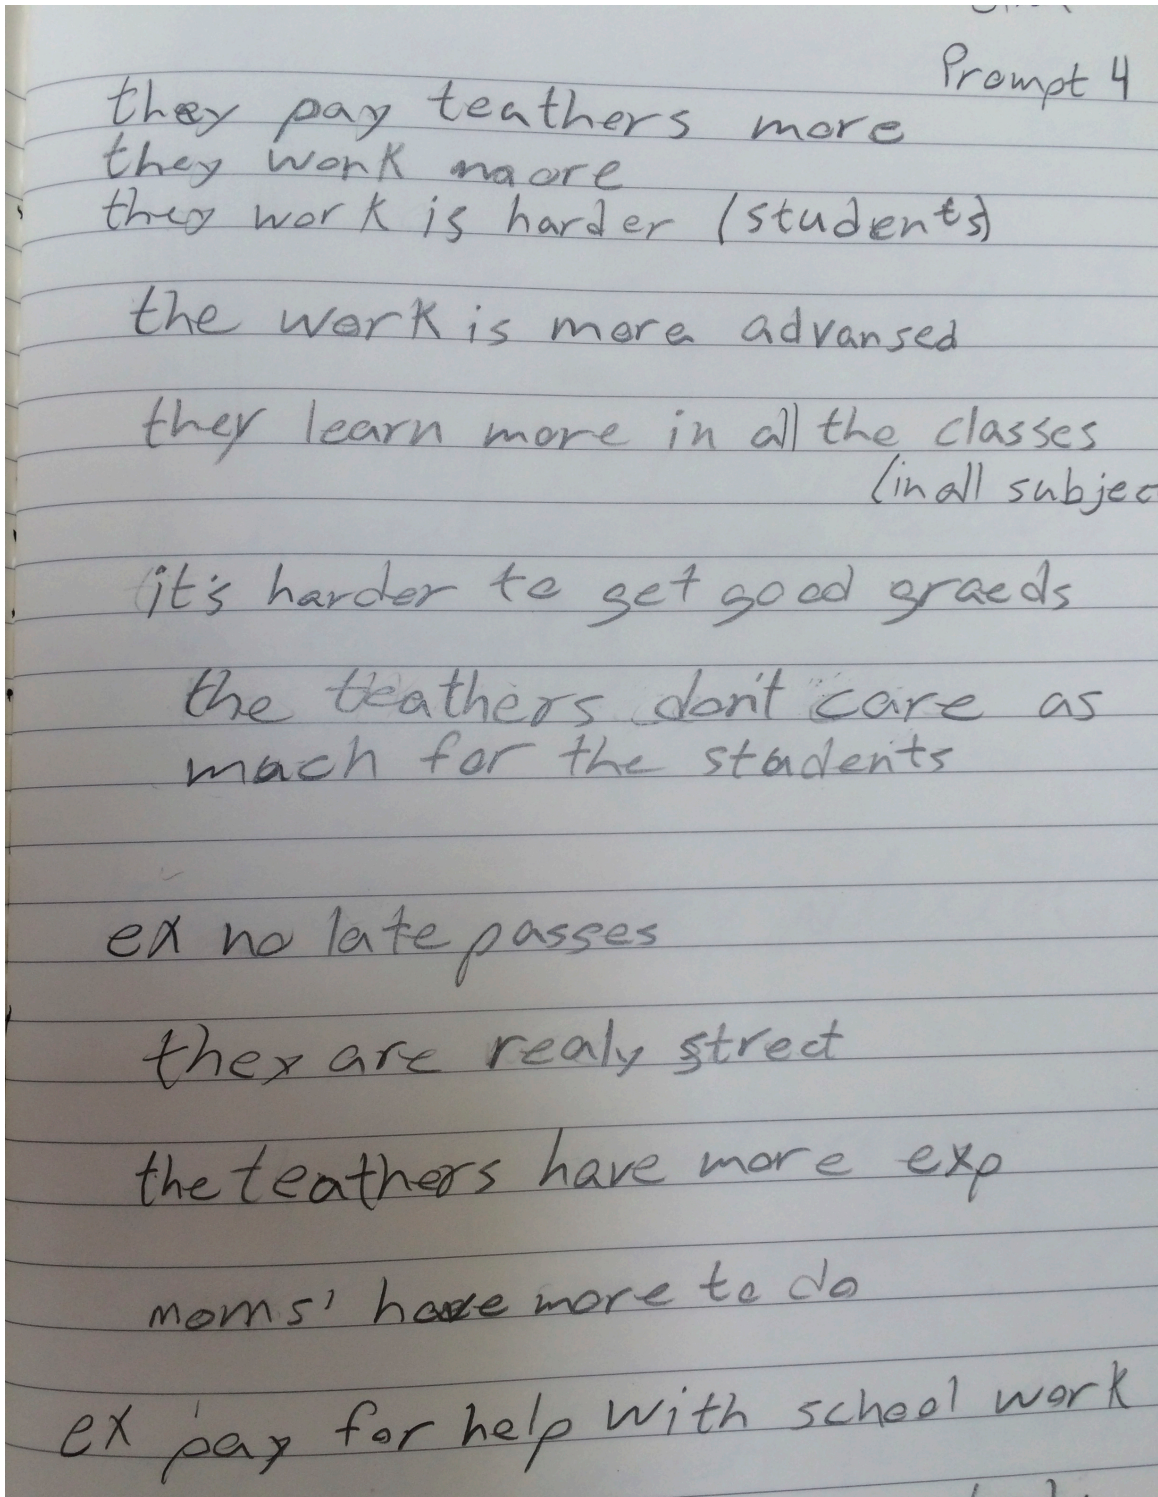 Prompt 4
they pay teathers more
they work maore
they work is harder (students)
the work is more advansed
they learn more in all the classes
(in all subjec
it's harder to get good graeds
the teathers don't care as
mach for the students
ex no late passes
they are realy strect
the teathers have more exp
moms' have more to do
ex pay for help with school work